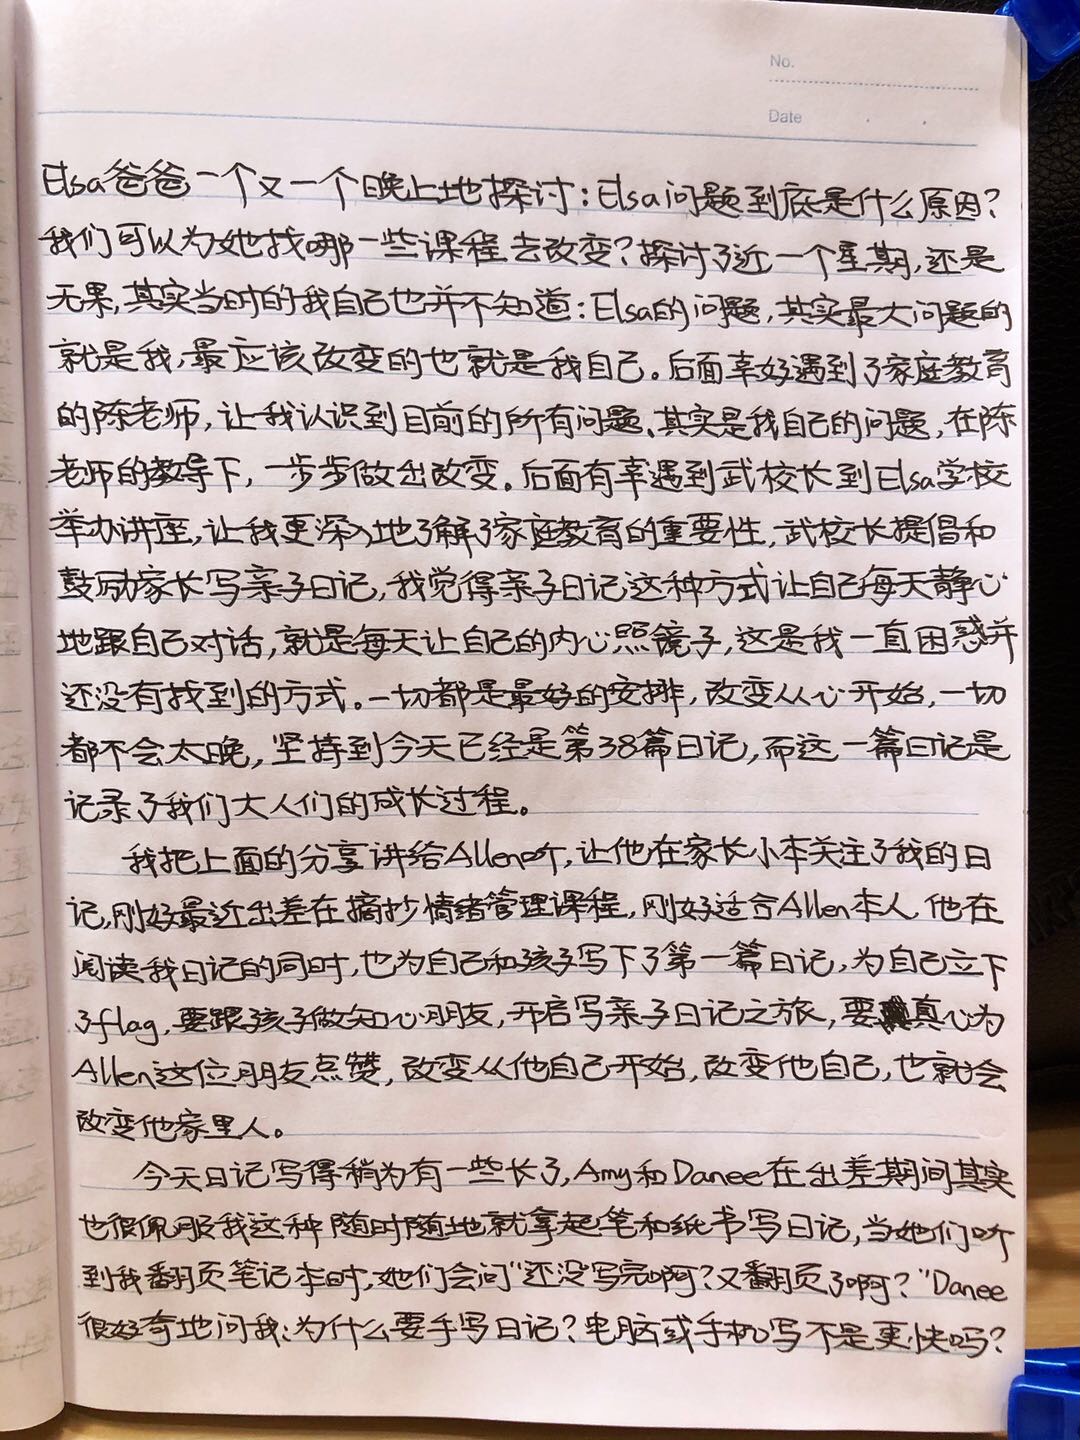 No.
Date
Elsa爸爸一个又一个晚上地探讨:Elsa问题到底是什么原因?
我们可以为她找哪一些课程去改变?探讨了近一个星期,还是
无果,其实当时的我自己也并不知道:Elsa的问题,其实最大问题的
就是我,最应该改变的也就是我自己。后面幸好遇到了家庭教育
的陈老师,让我认识到目前的所有问题、其实是我自己的问题,在陈
老师的教导下,一步步做出改变。后面有幸遇到武校长到Elsa学校
举办讲座,让我更深入地了解了家庭教育的重要性,武校长提倡和
鼓励家长写亲子日记,我觉得亲子日记这种方式让自己每天静心
地跟自己对话,就是每天让自己的内心照镜子,这是我一直困惑并
还没有找到的方式。一切都是最好的安排,改变从心开始,一切
都不会太晚,坚持到今天已经是第38篇日记,而这一篇日记是
记录了我们大人们的成长过程。
我把上面的分享讲给Allen听,让他在家长小本关注了我的日
记,刚好最近出差在摘抄情绪管理课程,刚好适合Allen本人,他在
阅读我日记的同时,也为自己和孩子写下了第一篇日记,为自己立下
了flag,要跟孩子做知心朋友,开启写亲子日记之旅,要真心为
Allen这位朋友点赞,改变从他自己开始,改变他自己,也就会
改变他家里人。
今天日记写得稍为有一些长了,Amy和Danee在出差期间其实
也很佩服我这种随时随地就拿起笔和纸书写日记,当她们听
到我翻页笔记本时,她们会问"还没写完啊?又翻页了啊?"Danee
很好奇地问我:为什么要手写日记?电脑或手机写不是更快吗?